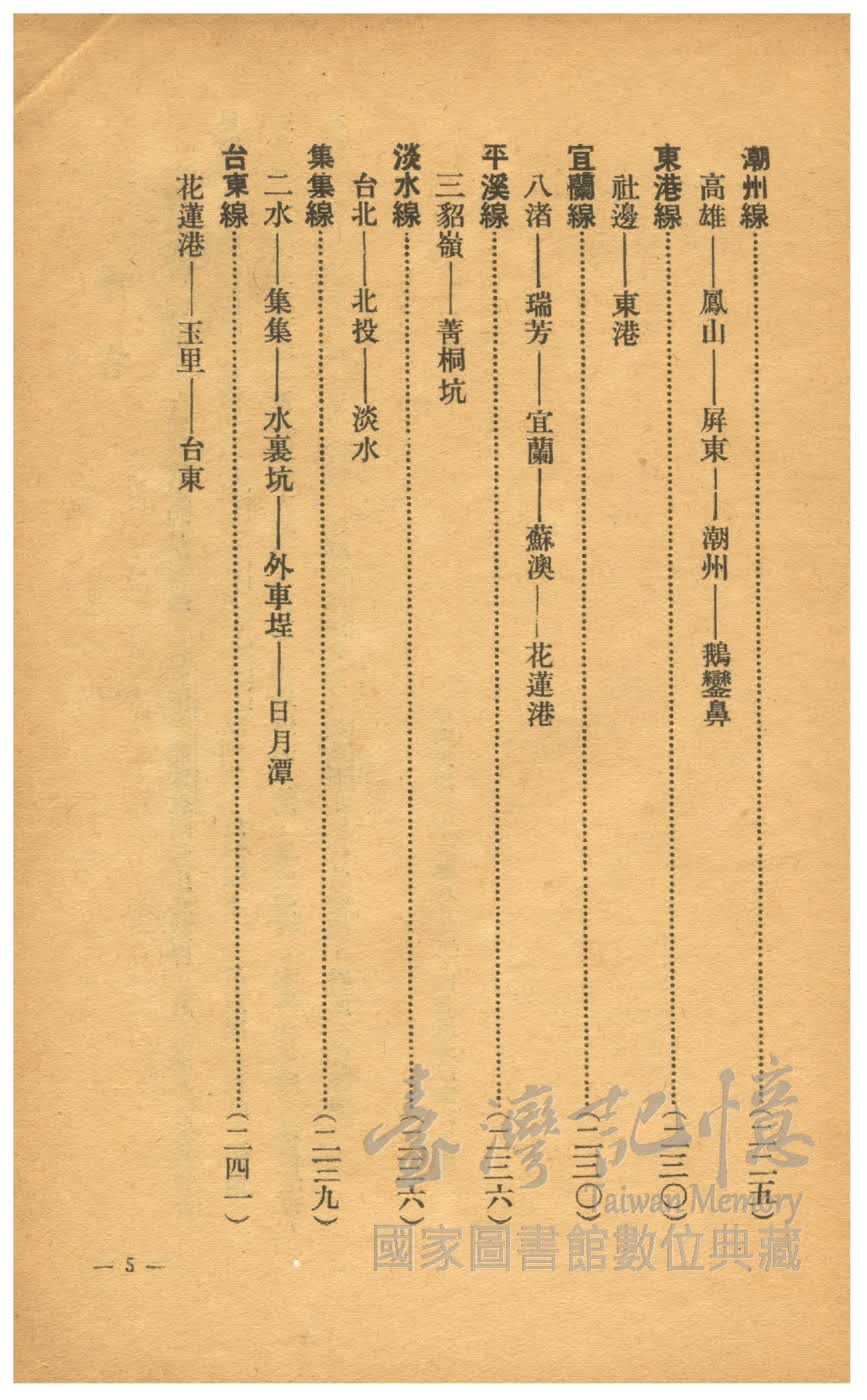 潮州線………(二二五)
高雄——鳳山——屛東——潮州——鵝鑾鼻
東港線………(二三〇)
社邊——東港
宜蘭線………(二三〇)
八渚——瑞芳——宜蘭——蘇澳——花蓮港
平溪線………(二三六)
三貂嶺——菁桐坑
淡水線………(二三六)
台北——北投——淡水
集集線………(二三九)
二水——集集——水裏坑——外車埕——日月潭
台東線………(二四一)
花蓮港——玉里——台東
— 5 —
臺灣記憶
Taiwan Memory
國家圖書館數位典藏